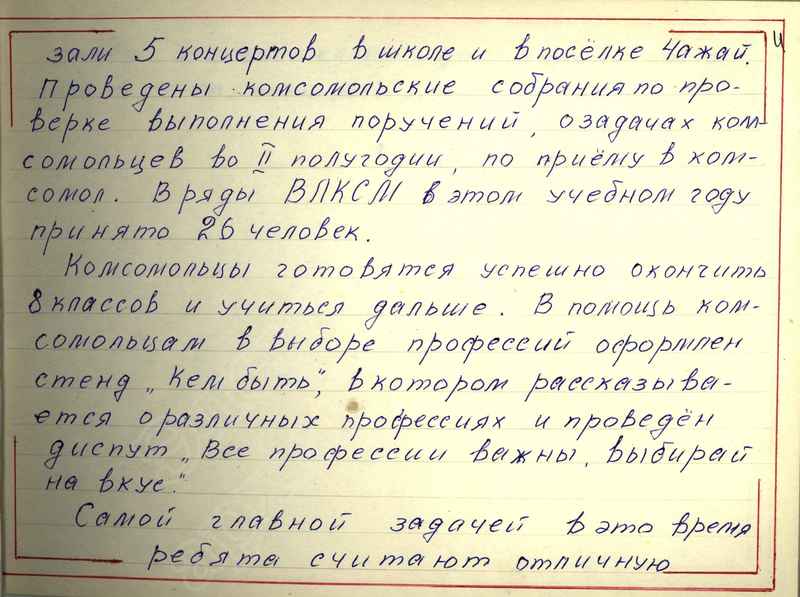 зали 5 концертов в школе и в посёлке Чажай.
Проведены комсомольские собрания по про-
верке выполнения поручений, о задачах ком-
сомольцев во II полугодии, по приёму в ком-
сомол. В ряды ВЛКСМ в этом учебном году
принято 26 человек.
Комсомольцы готовятся успешно окончить
8 классов и учиться дальше. В помощь ком-
сомольцам в выборе профессий оформлен
стенд „Кем быть", в котором рассказыва-
ется о различных профессиях и проведён
диспут „Все профессии важны, выбирай
на вкус."
Самой главной задачей в это время
ребята считают отличную